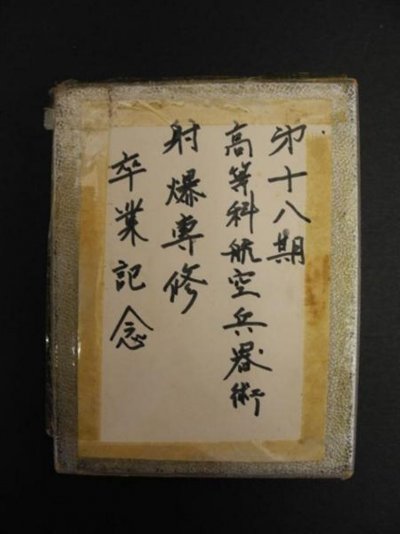 第十八期
高等科航空兵器術
射爆専修
卒業記念